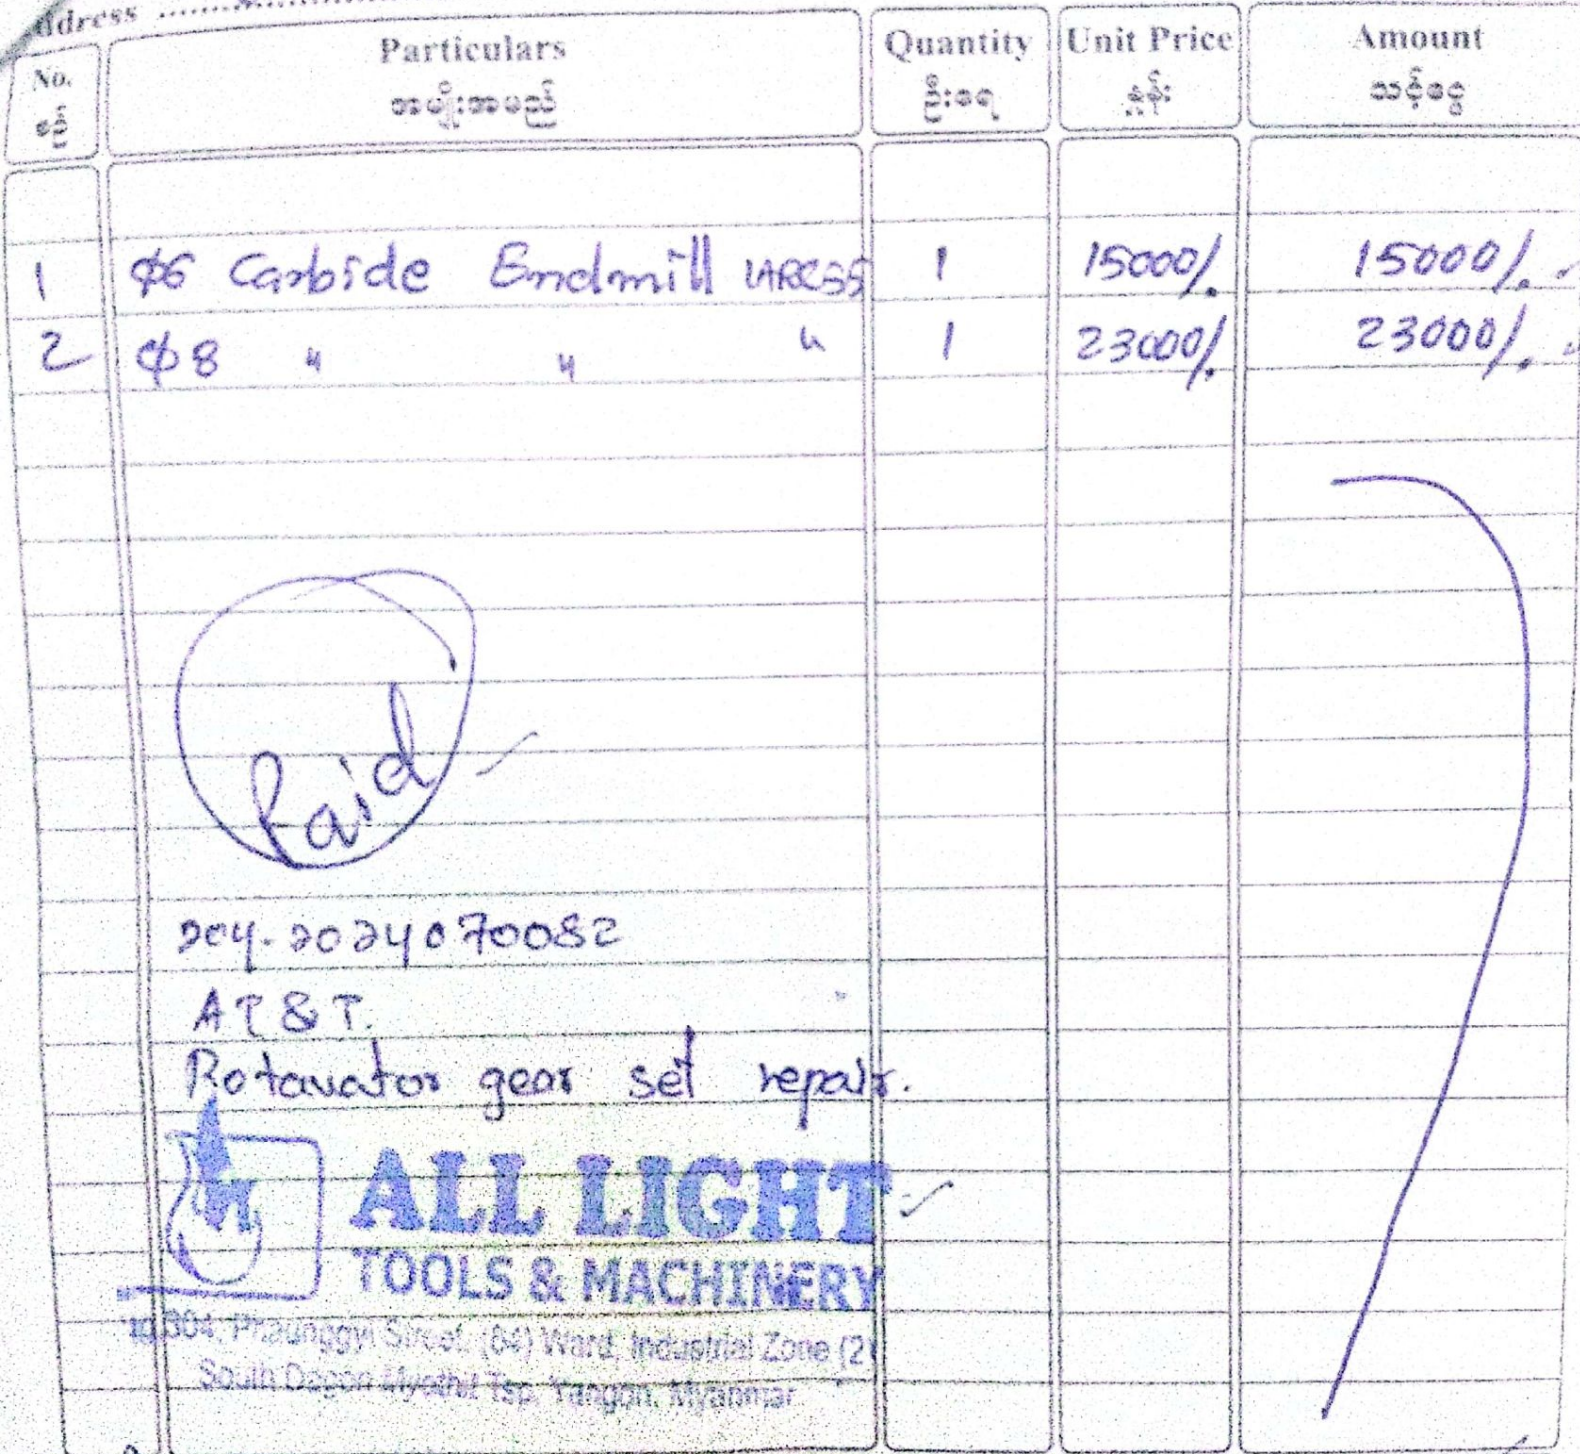 Address
No. Particulars Quantity Unit Price Amount
စဉ် အမျိုးအမည် ဦးရေ နှုန်း သင့်ငွေ
1 ϕ6 Carbide Endmill HRC55 1 15000/. 15000/.
2 ϕ8 " " " 1 23000/. 23000/.
Paid
2024070082
AT & T.
Rotavator gear set repair.
ALL LIGHT
TOOLS & MACHINERY
304, Phaunggyi Street, (64) Ward, Industrial Zone (2)
South Dagon Myothit Tsp, Yangon, Myanmar